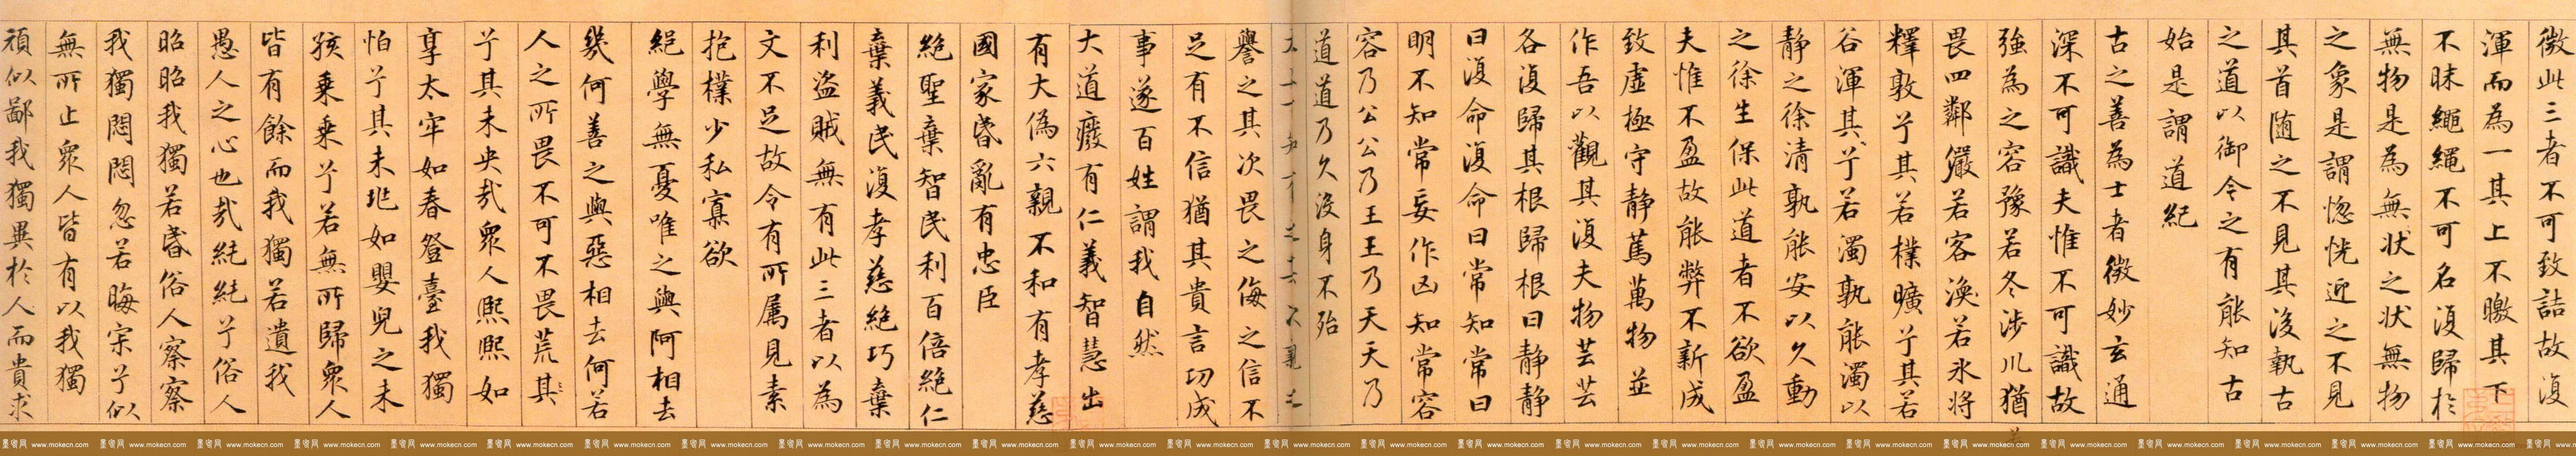 微此三者不可致詰故復
渾而為一其上不皦其下
不昧繩繩不可名復歸於
無物是為無狀之狀無物
之象是謂惚恍迎之不見
其首随之不見其後執古
之道以御今之有能知古
始是謂道紀
古之善為士者微妙玄通
深不可識夫惟不可識故
強為之容豫若冬涉川猶
畏四鄰儼若客渙若氷將
釋敦兮其若樸曠兮其若
谷渾其兮若濁孰能濁以
静之徐清孰能安以久動
之徐生保此道者不欲盈
夫惟不盈故能弊不新成
致虚極守静篤萬物並
作吾以觀其復夫物芸芸
各復歸其根歸根曰静静
曰復命復命曰常知常曰
明不知常妄作凶知常容
容乃公公乃王王乃天天乃
道道乃久沒身不殆
知有之
譽之其次畏之侮之信不
足有不信猶其貴言功成
事遂百姓謂我自然
大道癈有仁義智慧出
有大偽六親不和有孝慈
國家昏亂有忠臣
絶聖棄智民利百倍絶仁
棄義民復孝慈絶巧棄
利盗賊無有此三者以為
文不足故令有所属見素
抱樸少私寡欲
絕學無憂唯之與阿相去
幾何善之與惡相去何若
人之所畏不可不畏荒其
兮其未央哉衆人熙熙如
享太牢如春登臺我獨
怕兮其未兆如嬰兒之未
孩乗乗兮若無所歸衆人
皆有餘而我獨若遺我
愚人之心也哉純純兮俗人
昭昭我獨若昏俗人察察
我獨悶悶忽若晦宋兮似
無所止衆人皆有以我獨
頑似鄙我獨異於人而貴求
墨客网 www.mokecn.com